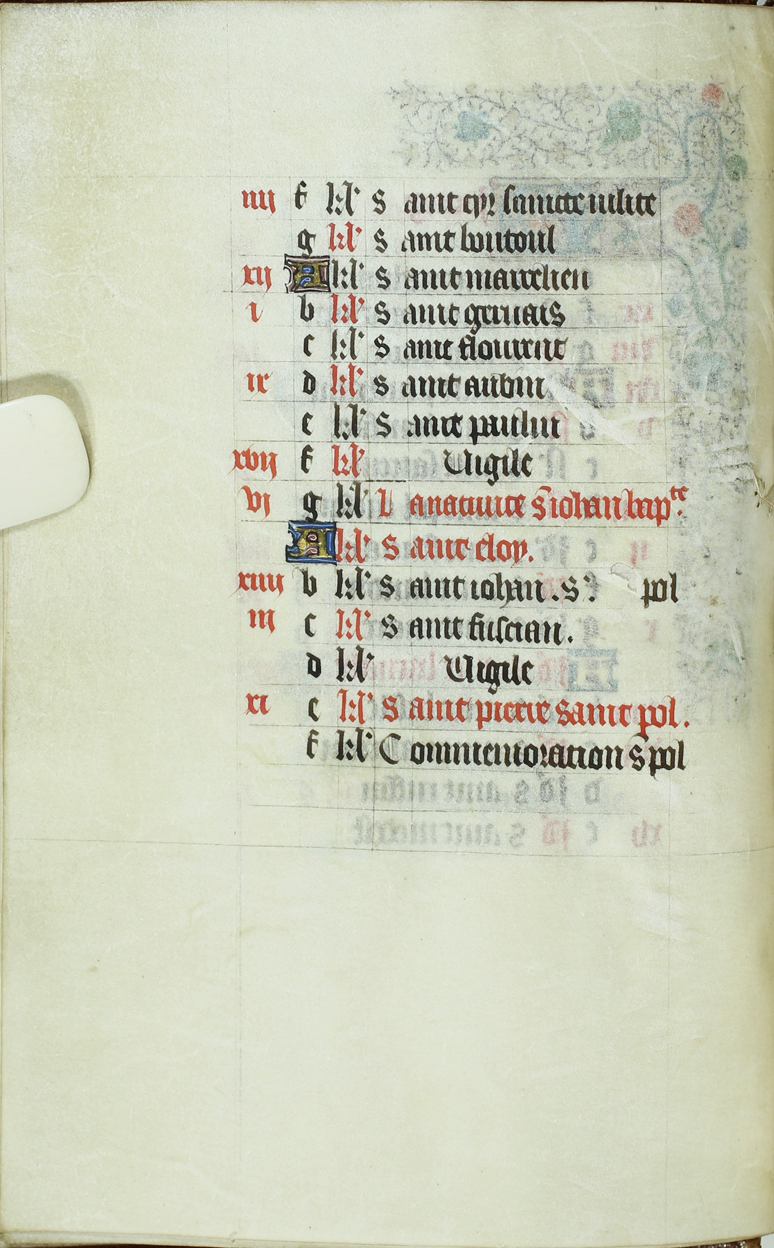 iiii f kl' Saint cyr sainte iulite
g kl' Saint boutoul
xij A kl' Saint marcelien
i b kl' Saint geruais
c kl' Saint flourent
ix d kl' Saint aubin
e kl' Saint paulin
xvij f kl' Uigile
vj g kl' La natiuite S iohan bapte.
A kl' Saint eloy.
xiiij b kl' Saint iohan. S. pol
iij c kl' Saint fuscian.
d kl' Uigile
xi e kl' Saint pierre saint pol.
f kl' Commemoration S pol